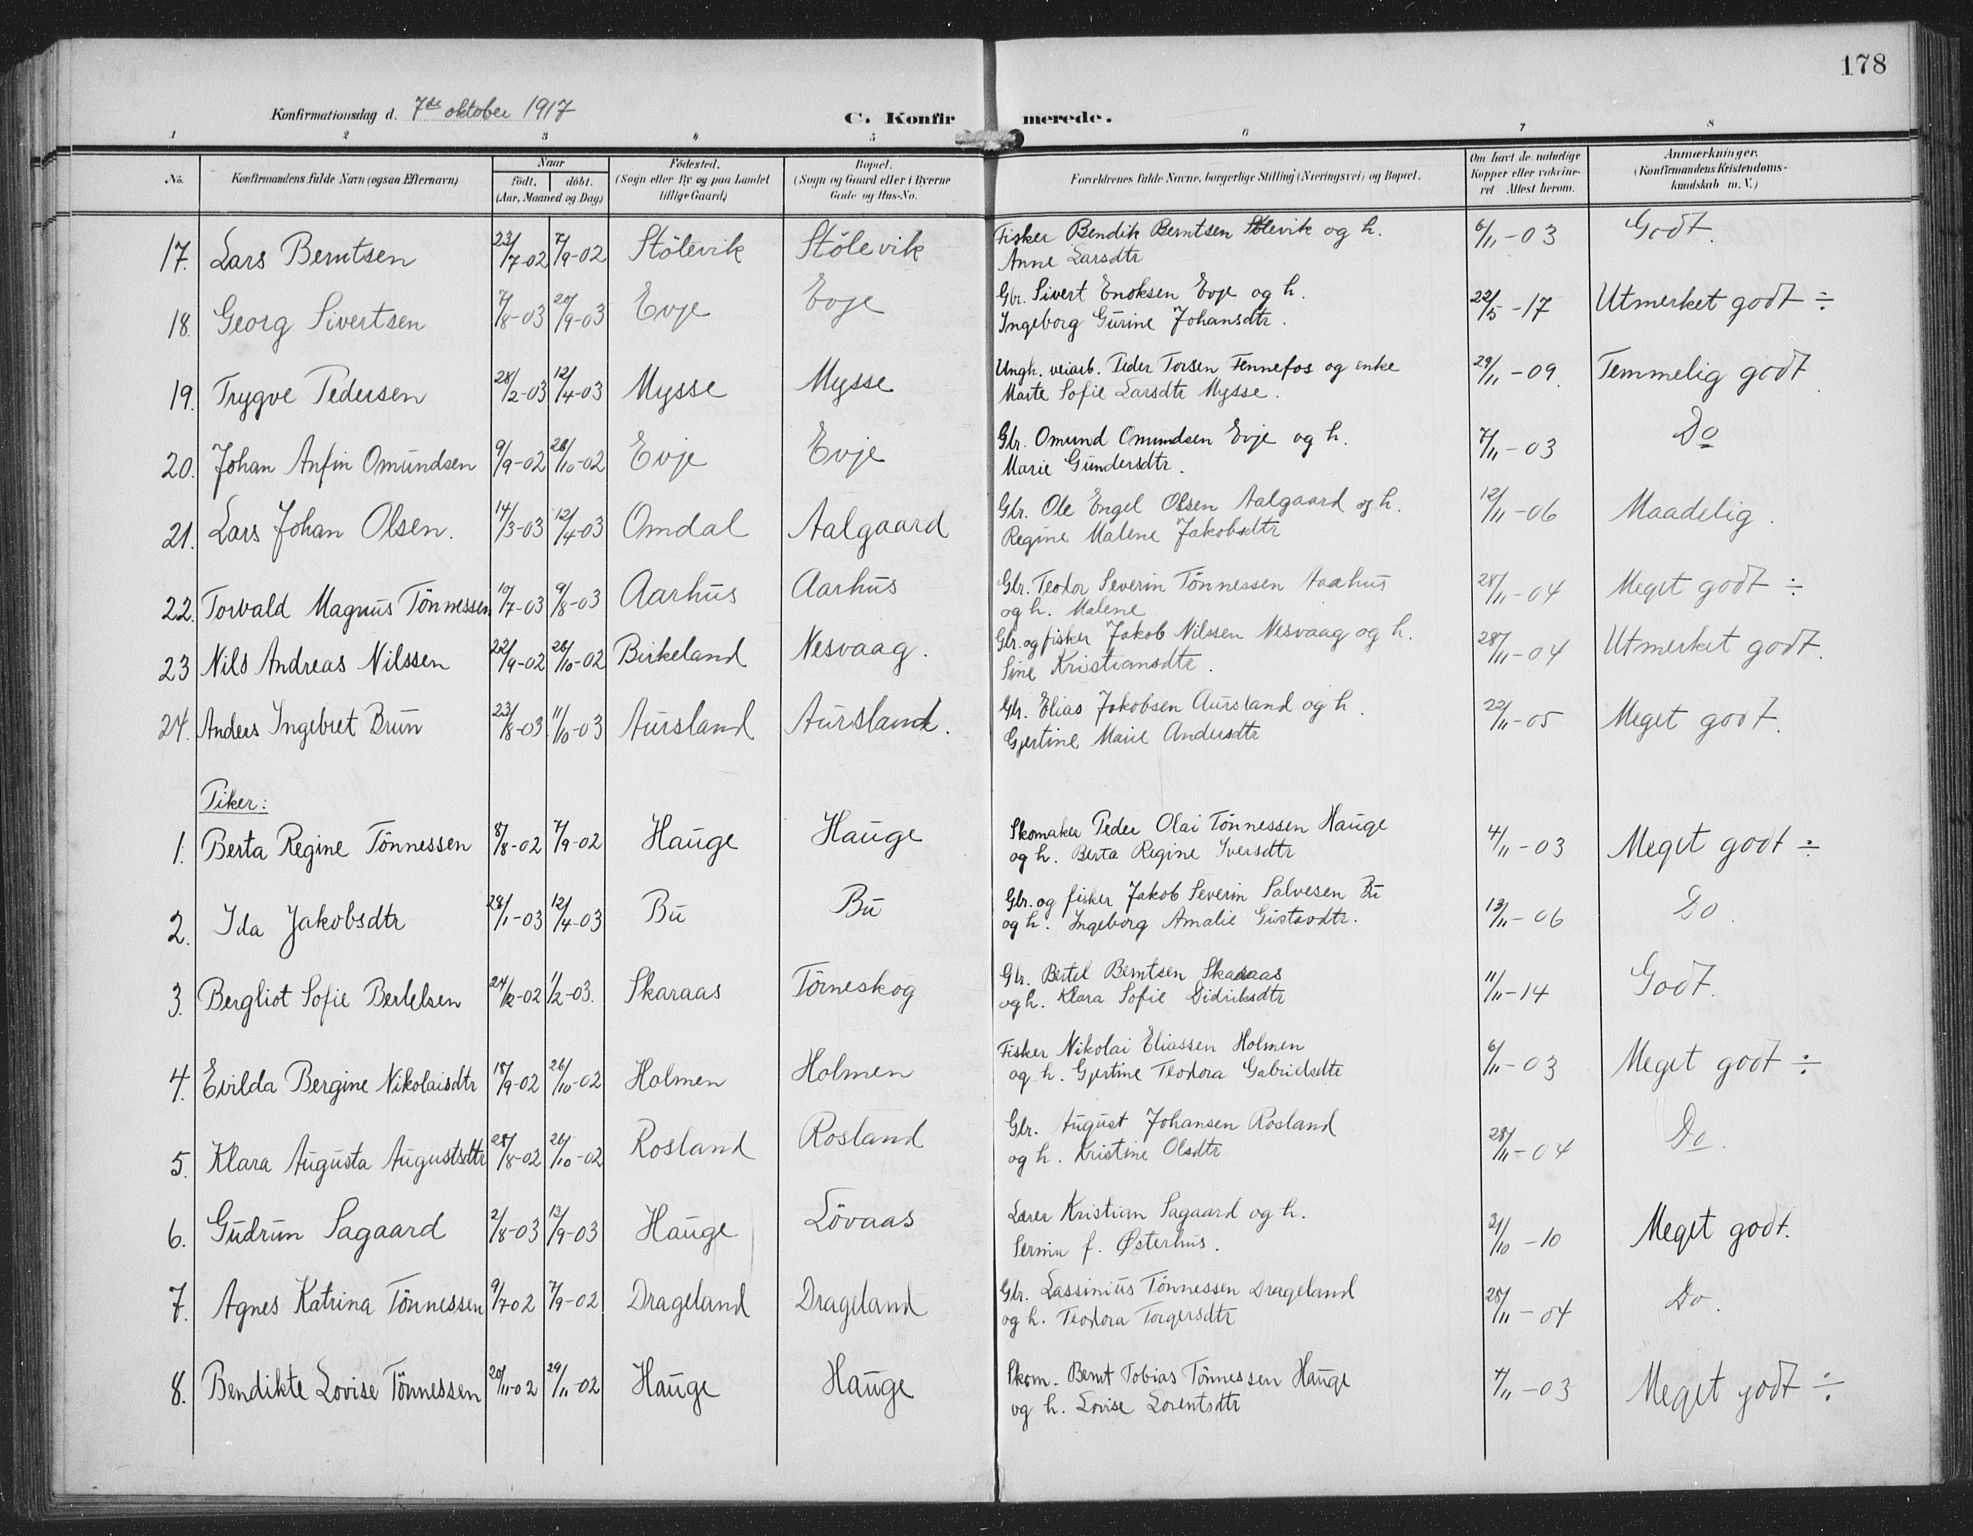 178
Konfirmationsdag d. 7de oktober 1917
C. Konfirmerede.
1 2 3 4 5 6 7 8
No. Konfirmandens fulde Navn (ogsaa Efternavn) Naar født. døbt. (Aar, Maaned og Dag) Fødested. (Sogn eller By og paa Landet tillige Gaard) Bopæl. (Sogn og Gaard eller i Byerne Gade og Hus-No. Forældrenes fulde Navne, borgerlige Stilling (Næringsvei) og Bopæl. Om havt de naturlige Kopper eller vakcineret Attest herom. Anmærkninger. (Konfirmandens Kristendomskundskab m. V.)
17. Lars Berntsen 23/7-02 7/9-02 Stölevik Stölevik Fisker Bendik Berntsen Stölevik og h. 6/11-03 Godt.
Anne Larsdtr
18. Georg Sivertsen 7/8-03 20/9-03 Evje Evje Gbr. Sivert Enoksen Evje og h. 22/5-17 Utmerket godt ÷
Ingeborg Gurine Johansdtr.
19. Trygve Pedersen 28/2-03 12/4-03 Mysse Mysse Ungk. veiarb. Peder Torsen Fennefos og enke 29/11-09. Temmelig godt
Marte Sofie Larsdtr Mysse.
20. Johan Anfin Omundsen 9/9-02 26/10-02 Evje Evje Gbr. Omund Omundsen Evje og h. 7/11-03 Do
Marie Gundersdtr.
21. Lars Johan Olsen. 14/3-03 12/4-03 Omdal Aalgaard Gbr. Ole Engel Olsen Aalgaard og h. 12/11-06 Maadelig.
Regine Malene Jakobsdtr
22. Torvald Magnus Tönnessen 10/7-03 9/8-03 Aarhus Aarhus Gbr. Teodor Severin Tönnessen Aarhus 28/11-04 Meget godt ÷
og h. Malene
23 Nils Andreas Nilssen 22/9-02 26/10-02 Birkeland Nesvaag. Gbr. og fisker Jakob Nilssen Nesvaag og h. 28/11-04 Utmerket godt.
Sine Kristiansdtr.
24. Anders Ingebret Brun 23/8-03 11/10-03 Aursland Aursland. Gbr. Elias Jakobsen Aursland og h. 22/11-05 Meget godt.
Gjertine Marie Andersdtr
Piker:
1. Berta Regine Tönnessen 8/8-02 7/9-02 Hauge Hauge Skomaker Peder Olai Tönnessen Hauge 4/11-03 Meget godt ÷
og h. Berta Regine Iversdtr
2. Ida Jakobsdtr 28/1-03 12/4-03 Bu Bu Gbr. og fisker Jakob Severin Salvesen Bu 13/11-06 Do.
og h. Ingeborg Amalie Gustavdtr.
3. Bergliot Sofie Bertelsen 24/12-02 1/2-03. Skaraas Törneskog Gbr. Bertel Berntsen Skaraas 11/11-14 Godt.
og h. Klara Sofie Didriksdtr
4. Evilda Bergine Nikolaisdtr 18/9-02 26/10-02 Holmen Holmen Fisker Nikolai Eliassen Holmen 6/11-03 Meget godt ÷
og h. Gjertine Teodora Gabrielsdtr
5. Klara Augusta Augustsdtr 28/8-02 26/10-02 Rosland Rosland Gbr. August Johansen Rosland 28/11-04 Do.
og h. Kristine Olsdtr
6. Gudrun Sagaard 2/8-03 13/9-03 Hauge Lövaas Lærer Kristian Sagaard og h. /10-10 Meget godt.
f. Østerhus.
7. Agnes Katrina Tönnessen 9/7-02 7/9-02 Drageland Drageland Gbr. Lassinius Tönnessen Drageland 28/11-04 Do.
og h. Teodora Torgersdtr
8. Bendikte Lovise Tönnessen 20/11-02 29/11-02 Hauge Hauge Skom. Bernt Tobias Tönnessen Hauge 4/11-03 Meget godt ÷
og h. Lovise Lorentsdtr